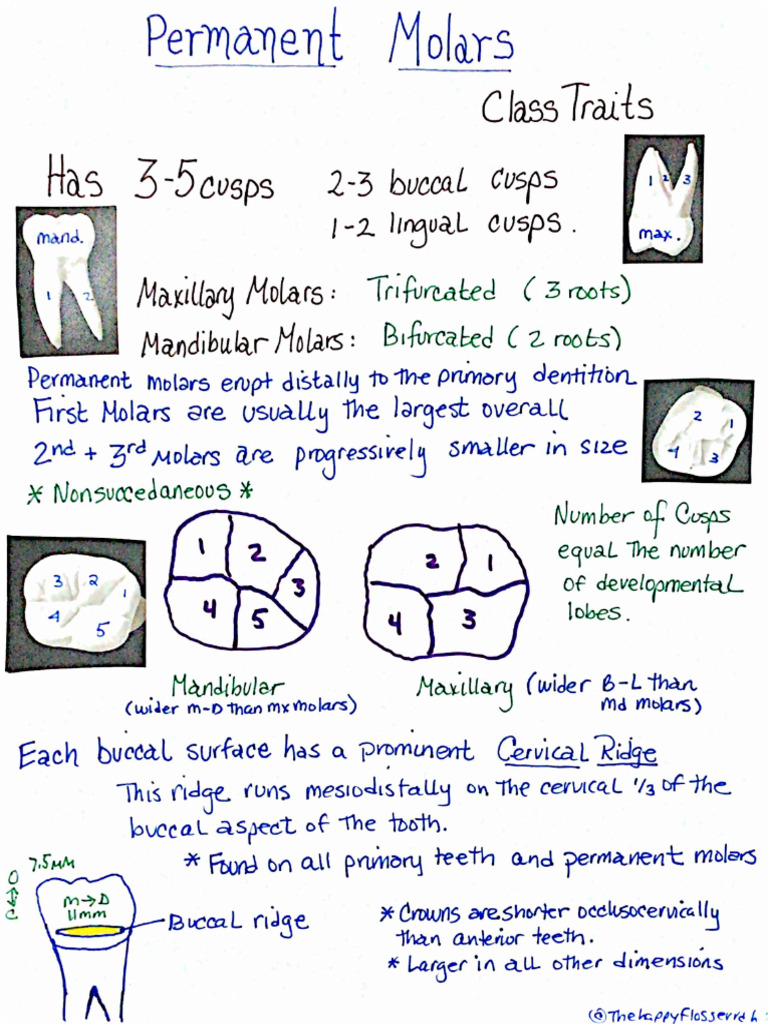 Permanent Molars
Class Traits
Has 3-5 cusps
2-3 buccal cusps
1-2 lingual cusps.
1 2 3
max.
mand.
1 2
Maxillary Molars: Trifurcated (3 roots)
Mandibular Molars: Bifurcated (2 roots)
Permanent molars erupt distally to the primary dentition
First Molars are usually the largest overall
2nd + 3rd Molars are progressively smaller in size
2 1
4 3
* Nonsuccedaneous *
Number of Cusps
equal the number
of developmental
lobes.
3 2 1
4 5
1 2 3
4 5
2 1
4 3
Mandibular
(wider m-D than mx molars)
Maxillary (wider B-L than
md molars)
Each buccal surface has a prominent Cervical Ridge
This ridge runs mesiodistally on the cervical 1/3 of the
buccal aspect of the tooth.
* Found on all primary teeth and permanent molars
7.5mm
O
↕
C
m→D
11mm
Buccal ridge
* Crowns are shorter occlusocervically
than anterior teeth.
* Larger in all other dimensions